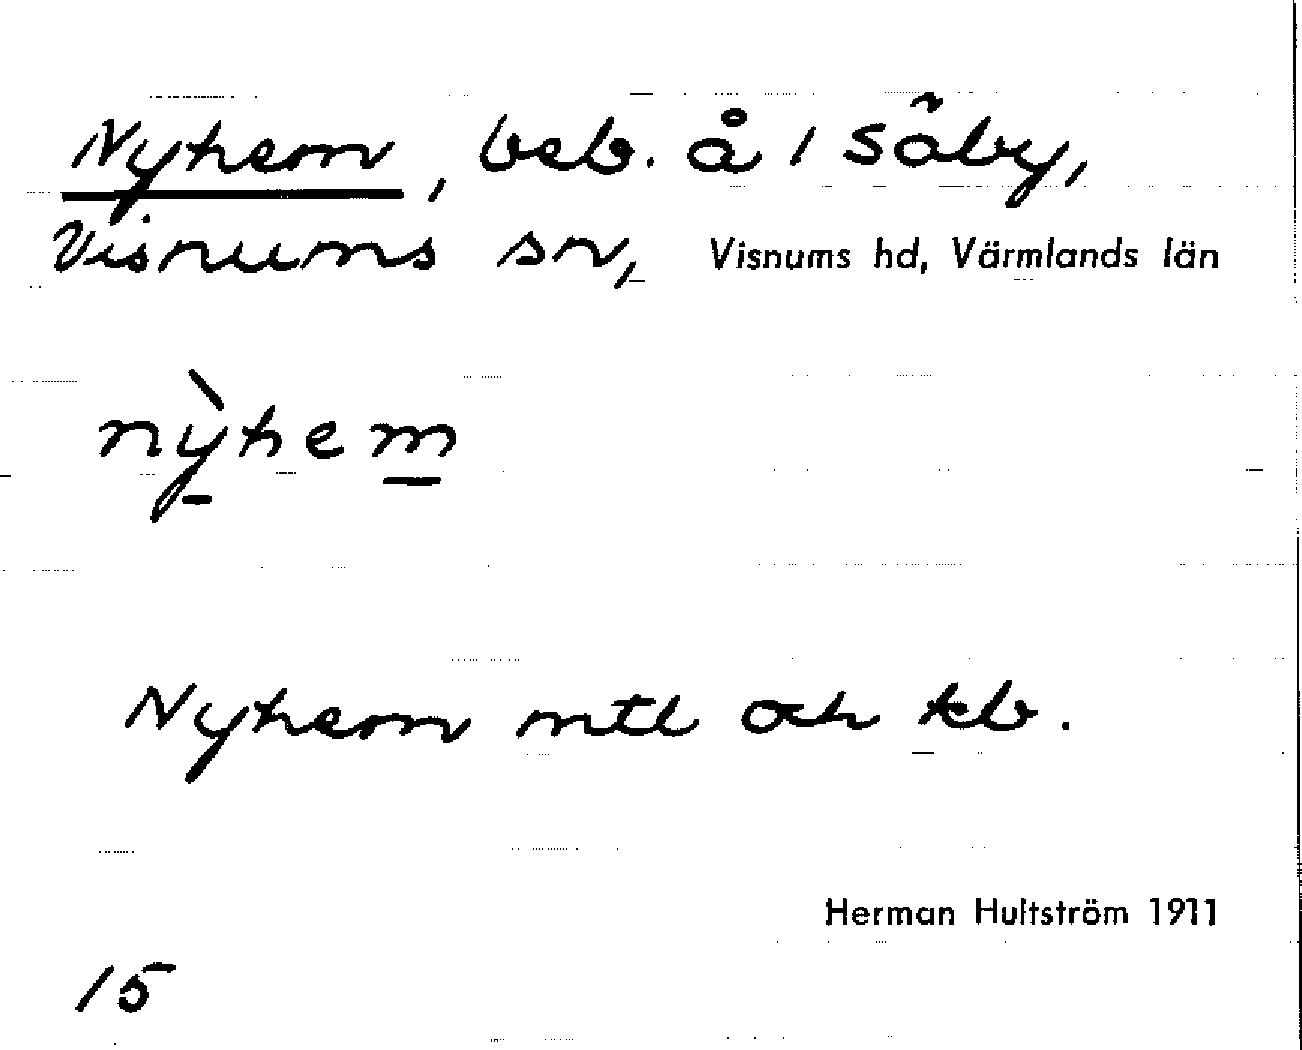 Nyhem, beb. å 1 Säby,
Visnums sn, Visnums hd, Värmlands län
nỳhem
Nyhem mtl och kb.
Herman Hultström 1911
15